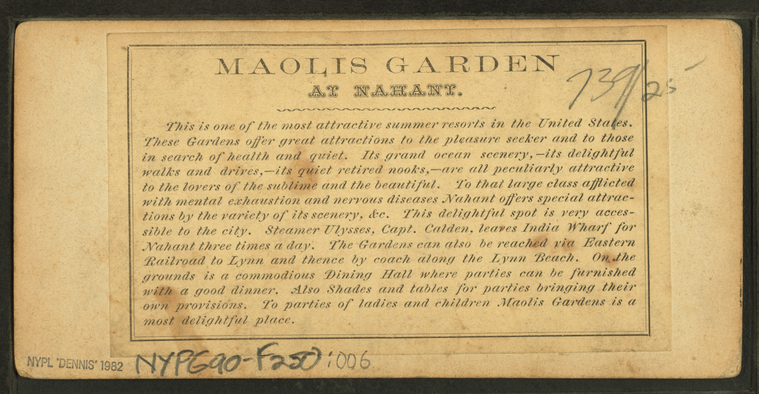 MAOLIS GARDEN
AT NAHANT.
739/25
This is one of the most attractive summer resorts in the United States.
These Gardens offer great attractions to the pleasure seeker and to those
in search of health and quiet. Its grand ocean scenery,—its delightful
walks and drives,—its quiet retired nooks,—are all peculiarly attractive
to the lovers of the sublime and the beautiful. To that large class afflicted
with mental exhaustion and nervous diseases Nahant offers special attrac-
tions by the variety of its scenery, &c. This delightful spot is very acces-
sible to the city. Steamer Ulysses, Capt. Calden, leaves India Wharf for
Nahant three times a day. The Gardens can also be reached via Eastern
Railroad to Lynn and thence by coach along the Lynn Beach. On the
grounds is a commodious Dining Hall where parties can be furnished
with a good dinner. Also Shades and tables for parties bringing their
own provisions. To parties of ladies and children Maolis Gardens is a
most delightful place.
NYPL "DENNIS" 1982 NYPG90-F250:006